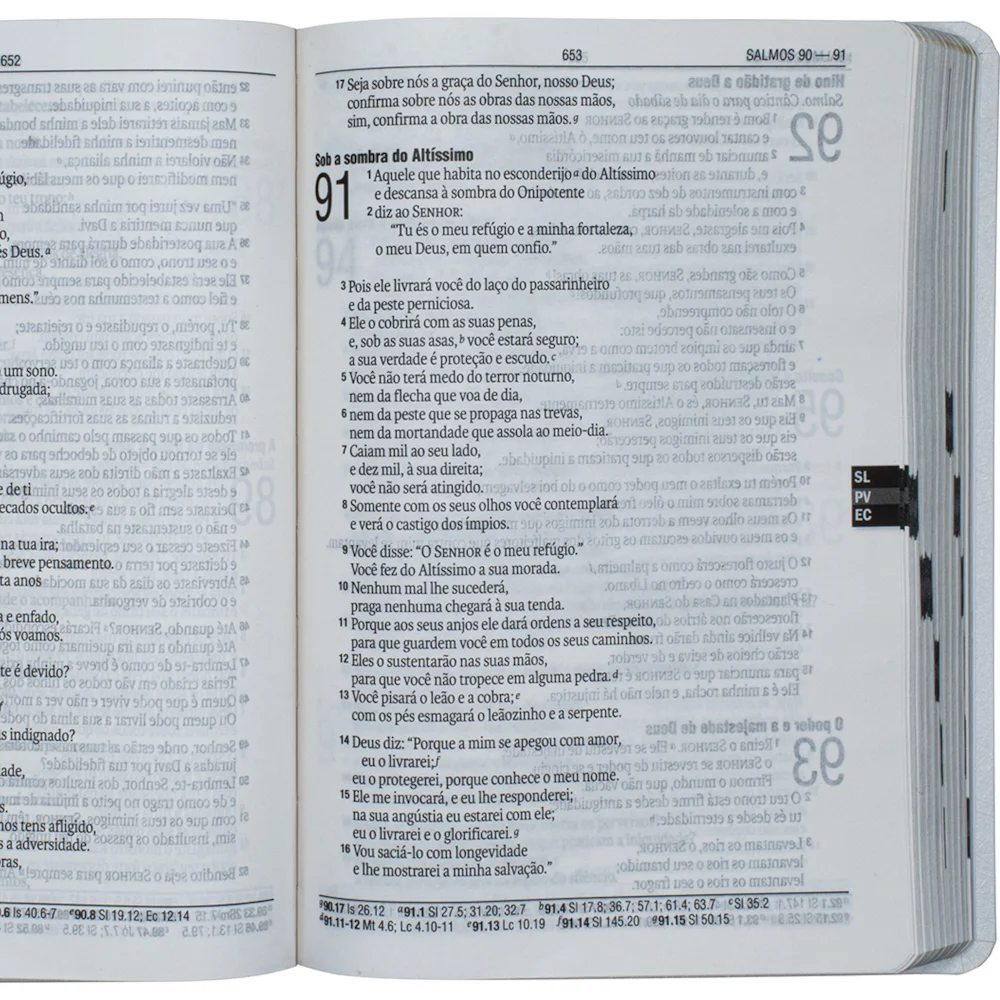 652
úgio,
o,
s Deus.a
mens."
um sono.
drugada;
e de ti
ecados ocultos.e
na tua ira;
breve pensamento.
ta anos
a e enfado,
ós voamos.
te é devido?
s indignado?
ade,
s.
nos tens afligido,
s a adversidade.
oras,
0.6 Is 40.6-7 e90.8 Sl 19.12; Ec 12.14
653 SALMOS 90—91
17 Seja sobre nós a graça do Senhor, nosso Deus;
confirma sobre nós as obras das nossas mãos,
sim, confirma a obra das nossas mãos.g
Sob a sombra do Altíssimo
91 1 Aquele que habita no esconderijo a do Altíssimo
e descansa à sombra do Onipotente
2 diz ao SENHOR:
"Tu és o meu refúgio e a minha fortaleza,
o meu Deus, em quem confio."
3 Pois ele livrará você do laço do passarinheiro
e da peste perniciosa.
4 Ele o cobrirá com as suas penas,
e, sob as suas asas,b você estará seguro;
a sua verdade é proteção e escudo.c
5 Você não terá medo do terror noturno,
nem da flecha que voa de dia,
6 nem da peste que se propaga nas trevas,
nem da mortandade que assola ao meio-dia.
7 Caiam mil ao seu lado,
e dez mil, à sua direita;
você não será atingido.
8 Somente com os seus olhos você contemplará
e verá o castigo dos ímpios.
9 Você disse: "O SENHOR é o meu refúgio."
Você fez do Altíssimo a sua morada.
10 Nenhum mal lhe sucederá,
praga nenhuma chegará à sua tenda.
11 Porque aos seus anjos ele dará ordens a seu respeito,
para que guardem você em todos os seus caminhos.
12 Eles o sustentarão nas suas mãos,
para que você não tropece em alguma pedra.d
13 Você pisará o leão e a cobra;e
com os pés esmagará o leãozinho e a serpente.
14 Deus diz: "Porque a mim se apegou com amor,
eu o livrarei;f
eu o protegerei, porque conhece o meu nome.
15 Ele me invocará, e eu lhe responderei;
na sua angústia eu estarei com ele;
eu o livrarei e o glorificarei.g
16 Vou saciá-lo com longevidade
e lhe mostrarei a minha salvação."
g90.17 Is 26.12 a91.1 Sl 27.5; 31.20; 32.7 b91.4 Sl 17.8; 36.7; 57.1; 61.4; 63.7 cSl 35.2
d91.11-12 Mt 4.6; Lc 4.10-11 e91.13 Lc 10.19 f91.14 Sl 145.20 g91.15 Sl 50.15
SL
PV
EC